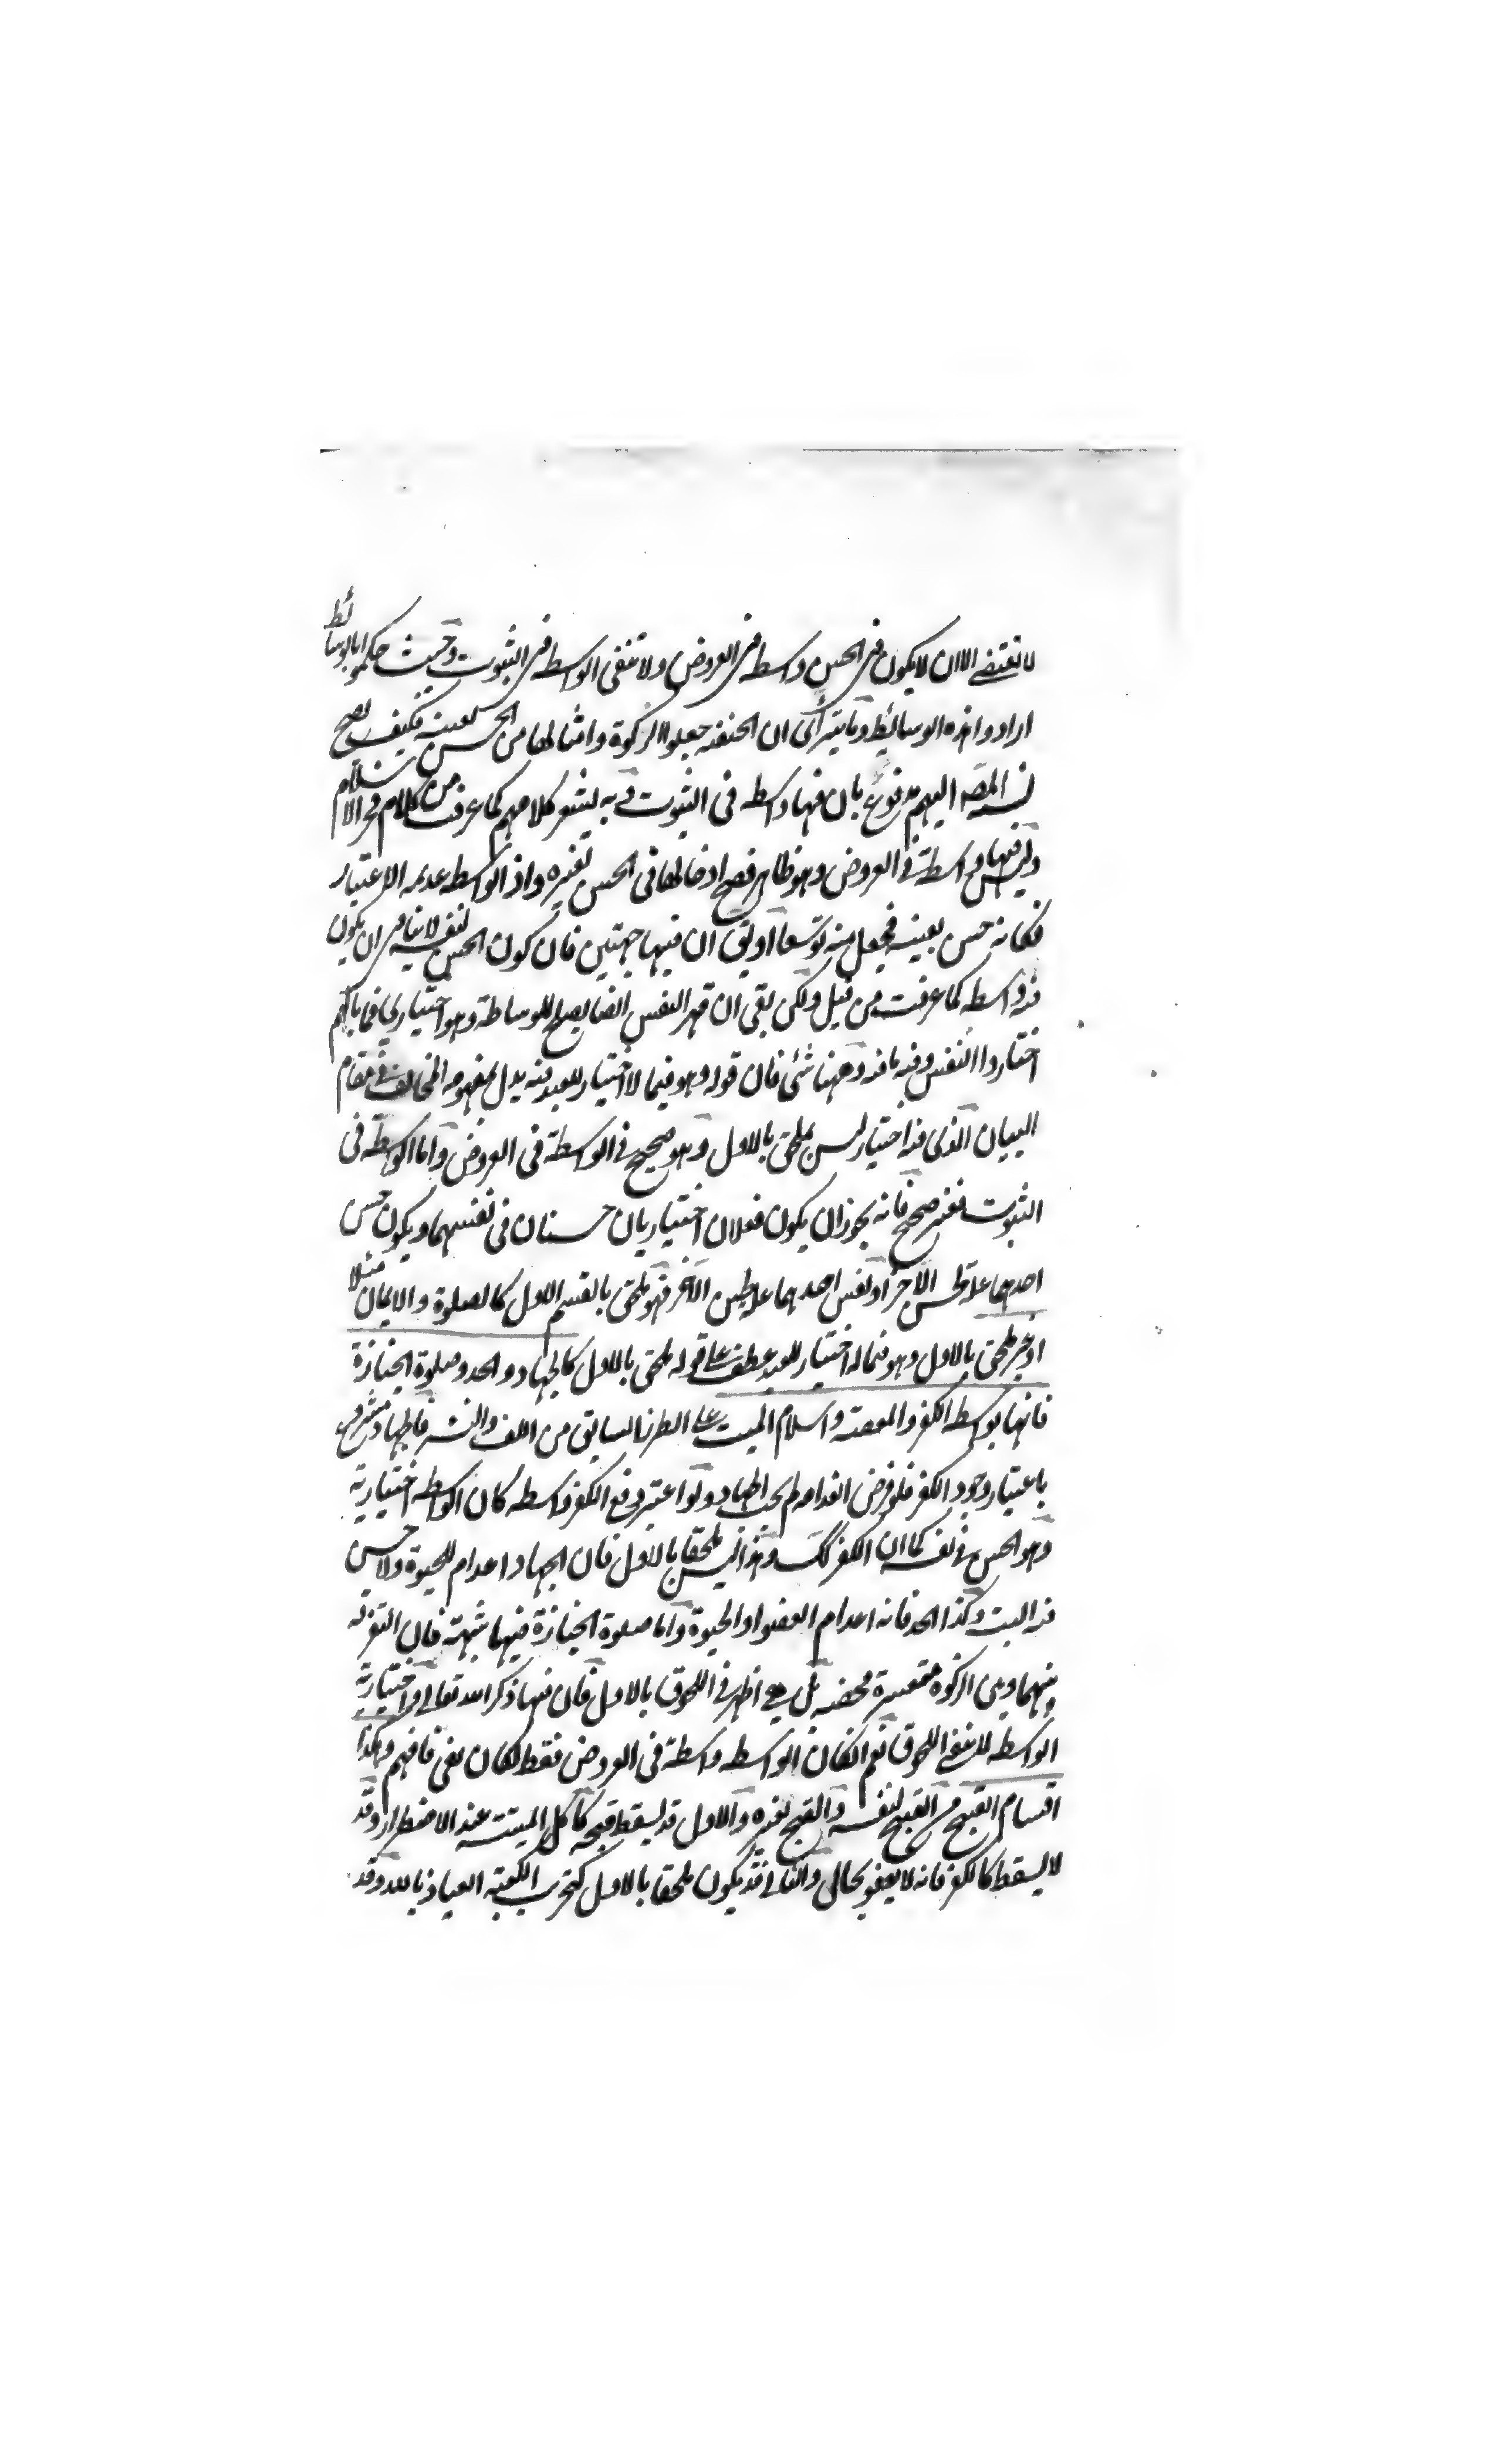 لا تقتضي الا ان لا يكون في الحسن واسطه في العروض ولا تنفي الواسطه في الثبوت وحيث حكموا بالوسائط
ارادوا هذه الوسائط وما يترأى ان الحنفيه جعلوا الزكوة وامثالها من الحسن لعينه فكيف يصح
نسبة المصه اليهم مدفوع بان فيها واسطه في الثبوت وبه يشعر كلامهم كما عرفت من كلام فخر الاسلام
وليس فيها واسطة في العروض وهو ظاهر فصح ادخالها في الحسن لغيره واذ الواسطه عديمه الاعتبار
فكانه حسن بعينه فجعل منه توسعا او يق ان فيها جهتين فان كون الحسن لنفسه لا ينافي ان يكون
فيه واسطه كما عرفت من قبل ولكن بقي ان قهر النفس ايضا يصلح للوساطة وهو اختياري فما بالهم
اختاروا النفس وفيه ما فيه وههنا شئ فان قوله وهو فيما لا اختيار للعبد فيه يدل بمفهومه المخالف في مقام
البيان الذي فيه اختيار ليس بملحق بالاول وهو صحيح في الواسطة في العروض واما الواسطة في
الثبوت فغير صحيح فانه يجوز ان يكون فعلان اختياريان حسنان في نفسهما ويكون حسن
احدهما علة لحسن الآخر او نفس احدهما علة لحسن الآخر فهو ملحق بالقسم الاول كالصلوة والايمان مثلا
او غير ملحق بالاول وهو فيما له اختيار للعبد عطف على قوله ملحق بالاول كالجهاد والحد وصلوة الجنازة
فانها بواسطه الكفر والمعصية واسلام الميت على الطرز السابق من اللف والنشر فالجهاد مشروع
باعتبار وجود الكفر فلو فرض انعدامه لم يجب الجهاد ولو اعتبر دفع الكفر واسطه كان الواسطه اختيارية
وهو الحسن في نفسه كما ان الكفر كك وهذا ليس ملحقا بالاول فان الجهاد اعدام للحيوة ولا حسن
فيه البتة وكذا الحد فانه اعدام العضو او الحيوة واما صلوة الجنازة ففيها شبهة فان التفرقه
بينها وبين الزكوة متعسرة محضه بل هي اظهر في اللحوق بالاول فان فيها ذكر الله تعالى واختيارية
الواسطه لا ينفي اللحوق نعم ان كان الواسطه واسطة في العروض فقط لكان نفي فافهم وهكذا
اقسام القبح من القبيح لنفسه والقبح لغيره والاول قد يسقط قبحه كاكل الميتة عند الاضطرار وقد
لا يسقط كالكفر فانه لا يعفو بحال والثاني قد يكون ملحقا بالاول كتخريب الكعبة العياذ بالله وقد